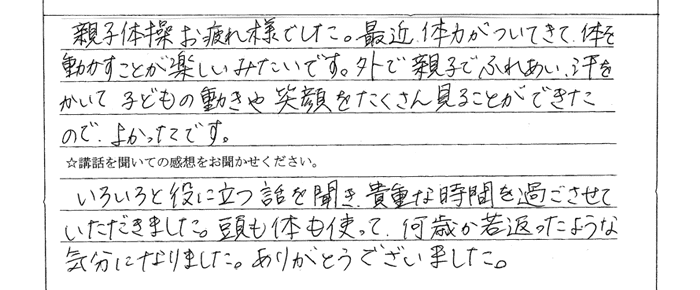 親子体操お疲れ様でした。最近、体力がついてきて、体を
動かすことが楽しいみたいです。外で親子でふれあい、汗を
かいて子どもの動きや笑顔をたくさん見ることができた
ので、よかったです。
☆講話を聞いての感想をお聞かせください。
いろいろと役に立つ話を聞き、貴重な時間を過ごさせて
いただきました。頭も体も使って、何歳か若返ったような
気分になりました。ありがとうございました。